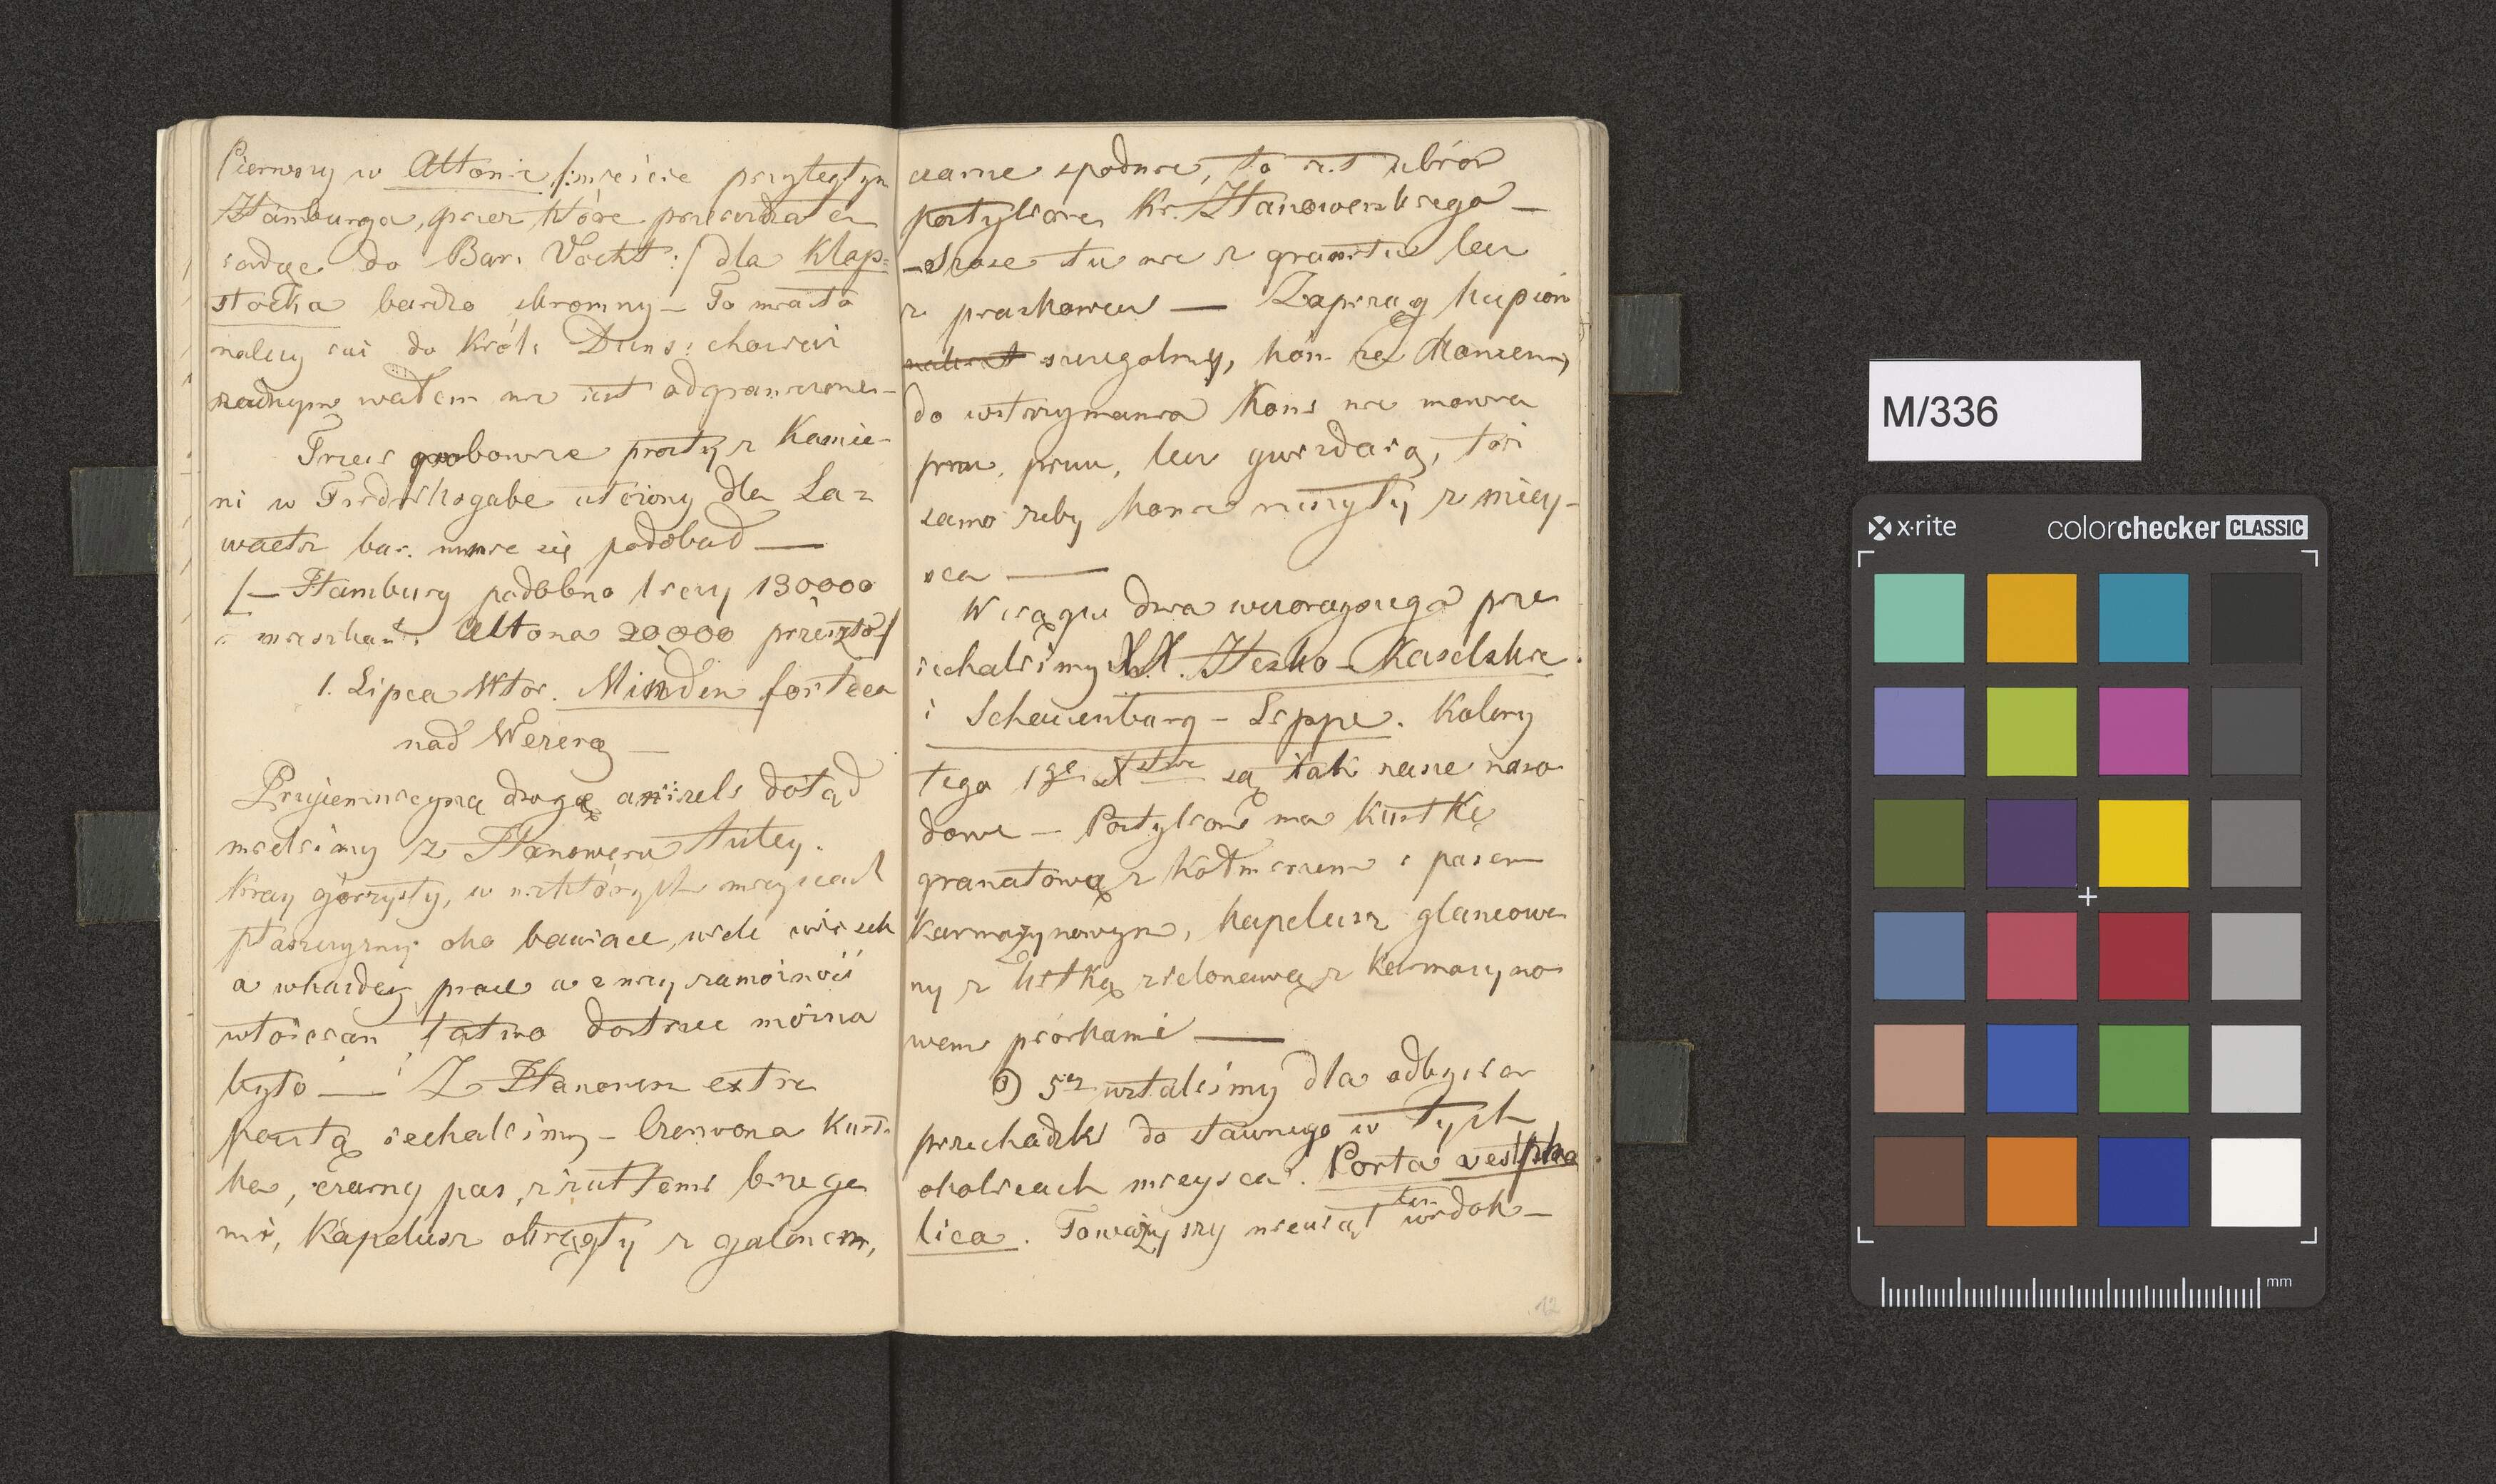 Pierwszy w Altonie /:mieście przyległym
Hamburga, przez które przejeżdżałem
jadąc do Bar. Vocht:/ dla Klop=
stocka bardzo skromny — To miasto
należy już do Król: Duńs: chociaż
żadnym wałem nie jest odgraniczone —
Trzeci grobowiec prosty z Kamie-
ni w Fredriksgabe utożony dla La=
waetz bar. mnie się podobał —
/— Hamburg podobno liczy 130000
mieszkań: Altona 20000 przeszło/
1. Lipca Wtor. Minden forteca
nad Wezerą —
Przyjemniejszą drogę aniżeli dotąd
mieliśmy z Hanoweru tutey.
Kray górzysty, w niektórych mieyscach
płaszczyzny oko bawiące, wiele wiosek
a w każdey prace a z niey zamożność
włościan łatwo dostrzec można
było — Z Hanoweru extra
pocztą jechaliśmy — Czerwona Kurt-
ka, czarny pas z żółtemi brzega
mi, Kapelusz okrągły z galonem,
czarne spodnie, to jest ubiór
postyliona Kr. Hanowerskiego —
— Szose tu nie z granitu lecz
z piaskowca — Zaprzęg
szczegolny, konie
do wstrzymania Koni nie mówią
prru, prruu, lecz gwizdaią, toż
samo żeby konie ruszyły z miey-
sca —
W ciągu dnia wczorayszego prze
iechaliśmy XX. Hesko-Kaselskie
i Schauenburg-Lippe. Kolory
tego 1go Xstwa są tak nasze naro
dowe — Postylion ma Kurtkę
granatową z kołnierzem i pasem
karmazynowym, kapelusz glancowa
ny z kitką zielonawą z karmazyno
wemi piórkami —
O 5ey wstaliśmy dla odbycia
przechadzki do sławnego w tych
okolicach mieysca: Porta vestpha
lica. Towarzyszy nieusiął ten widok —
M/336
x-rite
colorchecker CLASSIC
mm
12